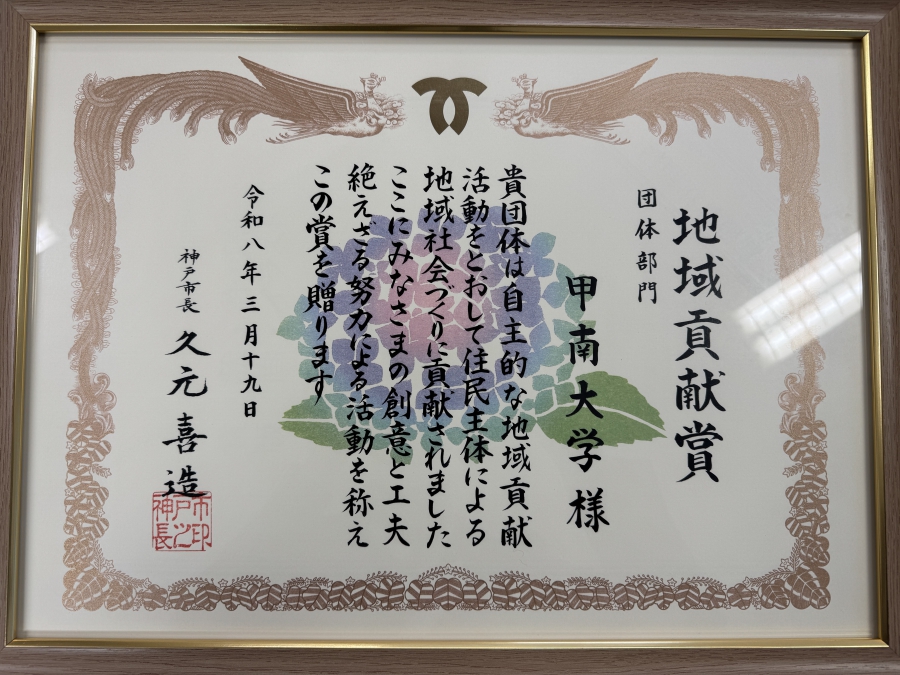 地域貢献賞
団体部門
甲南大学様
貴団体は自主的な地域貢献
活動をとおして住民主体による
地域社会づくりに貢献されました
ここにみなさまの創意と工夫
絶えざる努力による活動を称え
この賞を贈ります
令和八年三月十九日
神戸市長 久元喜造
神戸市長之印